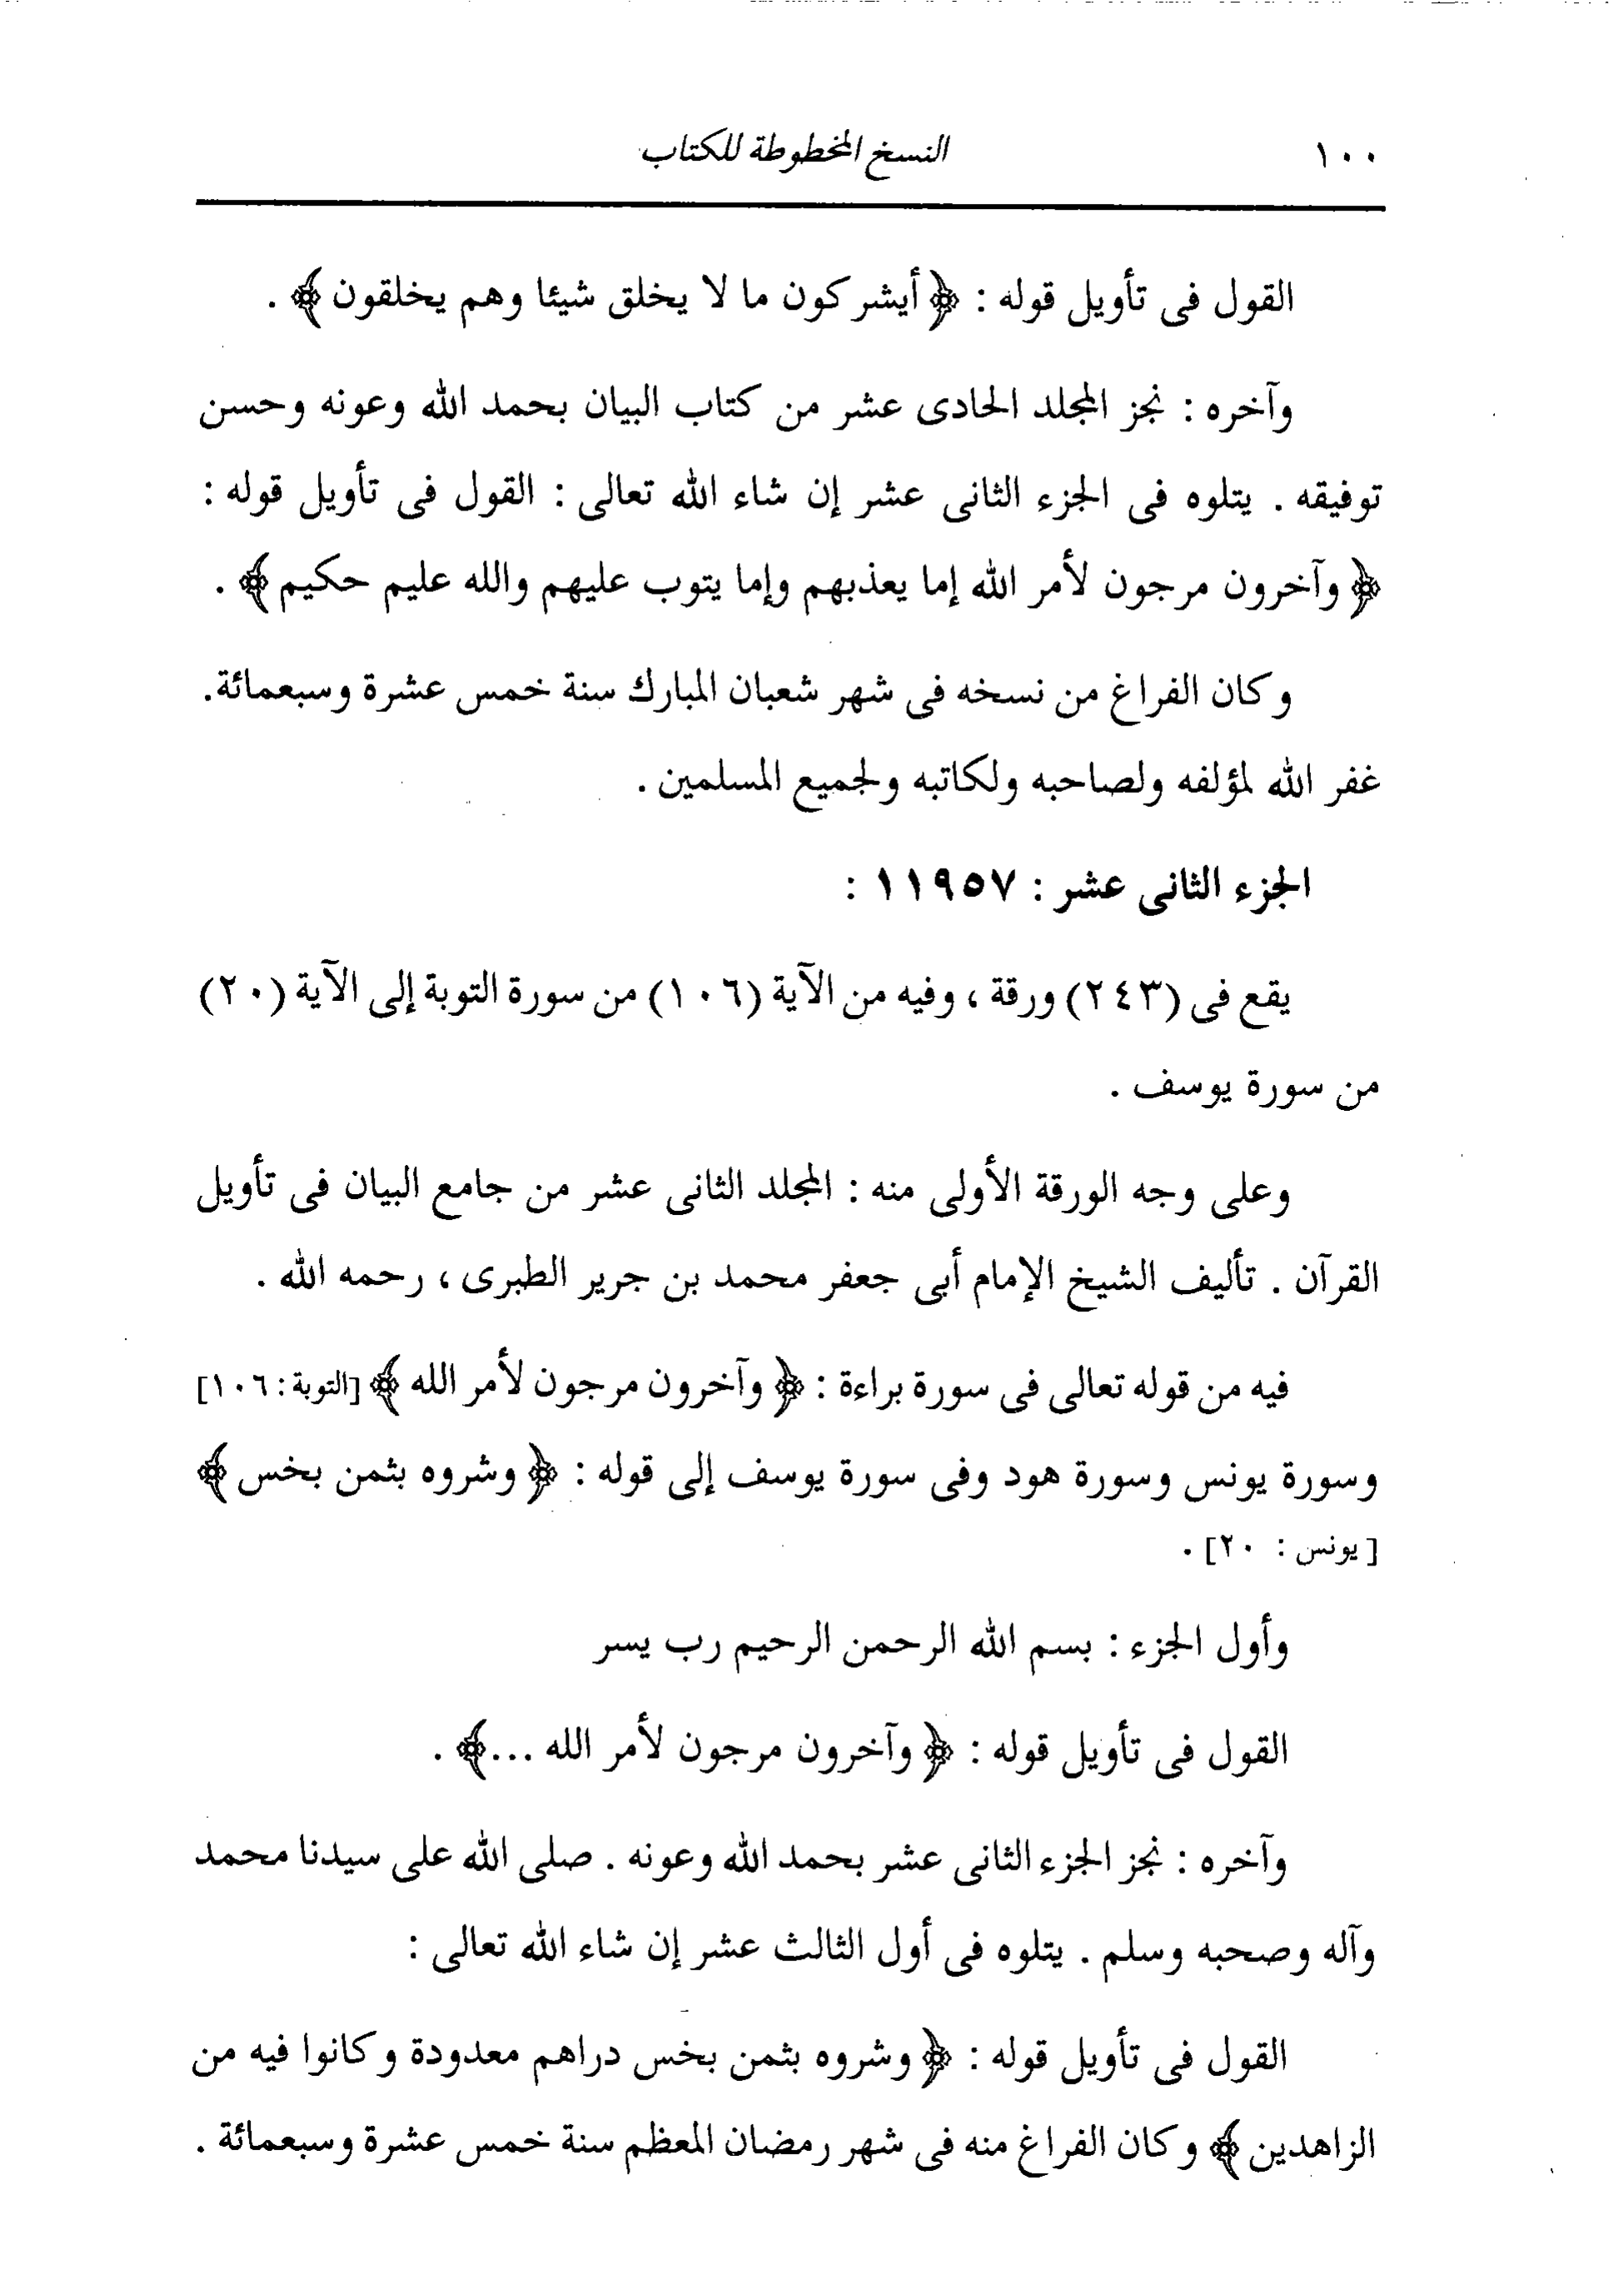 ١٠٠ النسخ المخطوطة للكتاب
القول فى تأويل قوله : ﴿ أيشركون ما لا يخلق شيئا وهم يخلقون ﴾ .
وآخره : نجز المجلد الحادى عشر من كتاب البيان بحمد الله وعونه وحسن
توفيقه . يتلوه فى الجزء الثانى عشر إن شاء الله تعالى : القول فى تأويل قوله :
﴿ وآخرون مرجون لأمر الله إما يعذبهم وإما يتوب عليهم والله عليم حكيم ﴾ .
وكان الفراغ من نسخه فى شهر شعبان المبارك سنة خمس عشرة وسبعمائة.
غفر الله لمؤلفه ولصاحبه ولكاتبه ولجميع المسلمين .
الجزء الثانى عشر : ١١٩٥٧ :
يقع فى (٢٤٣) ورقة ، وفيه من الآية (١٠٦) من سورة التوبة إلى الآية (٢٠)
من سورة يوسف .
وعلى وجه الورقة الأولى منه : المجلد الثانى عشر من جامع البيان فى تأويل
القرآن . تأليف الشيخ الإمام أبى جعفر محمد بن جرير الطبرى ، رحمه الله .
فيه من قوله تعالى فى سورة براءة : ﴿ وآخرون مرجون لأمر الله ﴾ [التوبة : ١٠٦]
وسورة يونس وسورة هود وفى سورة يوسف إلى قوله : ﴿ وشروه بثمن بخس ﴾
[يونس : ٢٠] .
وأول الجزء : بسم الله الرحمن الرحيم رب يسر
القول فى تأويل قوله : ﴿ وآخرون مرجون لأمر الله ...﴾ .
وآخره : نجز الجزء الثانى عشر بحمد الله وعونه . صلى الله على سيدنا محمد
وآله وصحبه وسلم . يتلوه فى أول الثالث عشر إن شاء الله تعالى :
القول فى تأويل قوله : ﴿ وشروه بثمن بخس دراهم معدودة وكانوا فيه من
الزاهدين ﴾ وكان الفراغ منه فى شهر رمضان المعظم سنة خمس عشرة وسبعمائة .